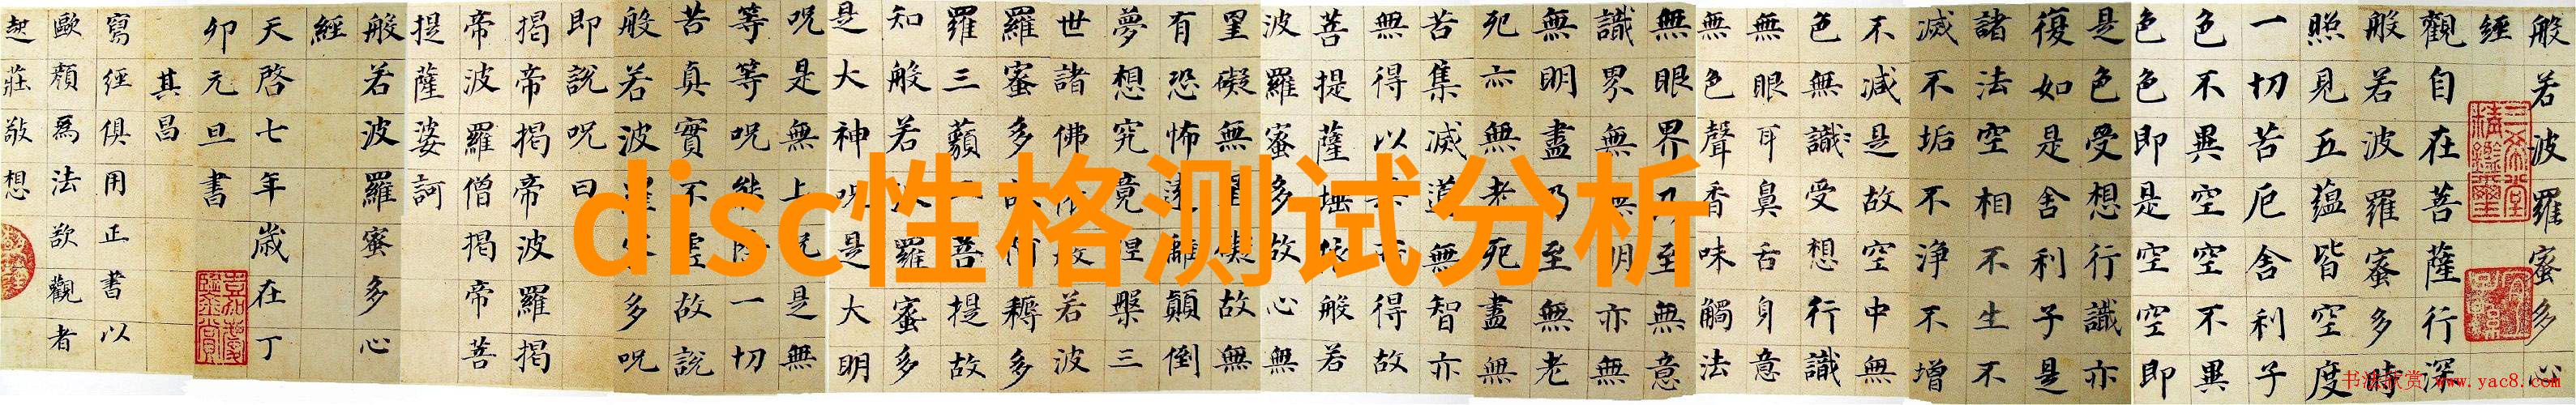 般若波羅蜜多心
經
觀自在菩薩行深
般若波羅蜜多時
照見五蘊皆空度
一切苦厄舍利子
色不異空空不異
色色即是空空即
是色受想行識亦
復如是舍利子是
諸法空相不生不
滅不垢不淨不增
不減是故空中無
色無識受想行識
無眼耳鼻舌身意
無色聲香味觸法
無眼界乃至無意
識界無無明亦無
無明盡乃至無老
死亦無老死盡無
苦集滅道無智亦
無得以無所得故
菩提薩埵依般若
波羅蜜多故心無
罣礙無罣礙故無
有恐怖遠離顛倒
夢想究竟涅槃三
世諸佛依若波
羅蜜多故阿耨多
羅三藐三菩提故
知般若波羅蜜多
是大神呪是大明
呪是無上呪是無
等等呪能除一切
苦真實不虛故說
般若波羅蜜多呪
即說呪曰
揭帝揭帝波羅揭
帝波羅僧揭帝菩
提薩婆訶
般若波羅蜜多心
經
天啓七年歲在丁
卯元旦書
其昌
寫經俱用正書以
歐顏為法欲觀者
起莊敬想
disc性格测试分析
书法欣赏 www.yac8.com